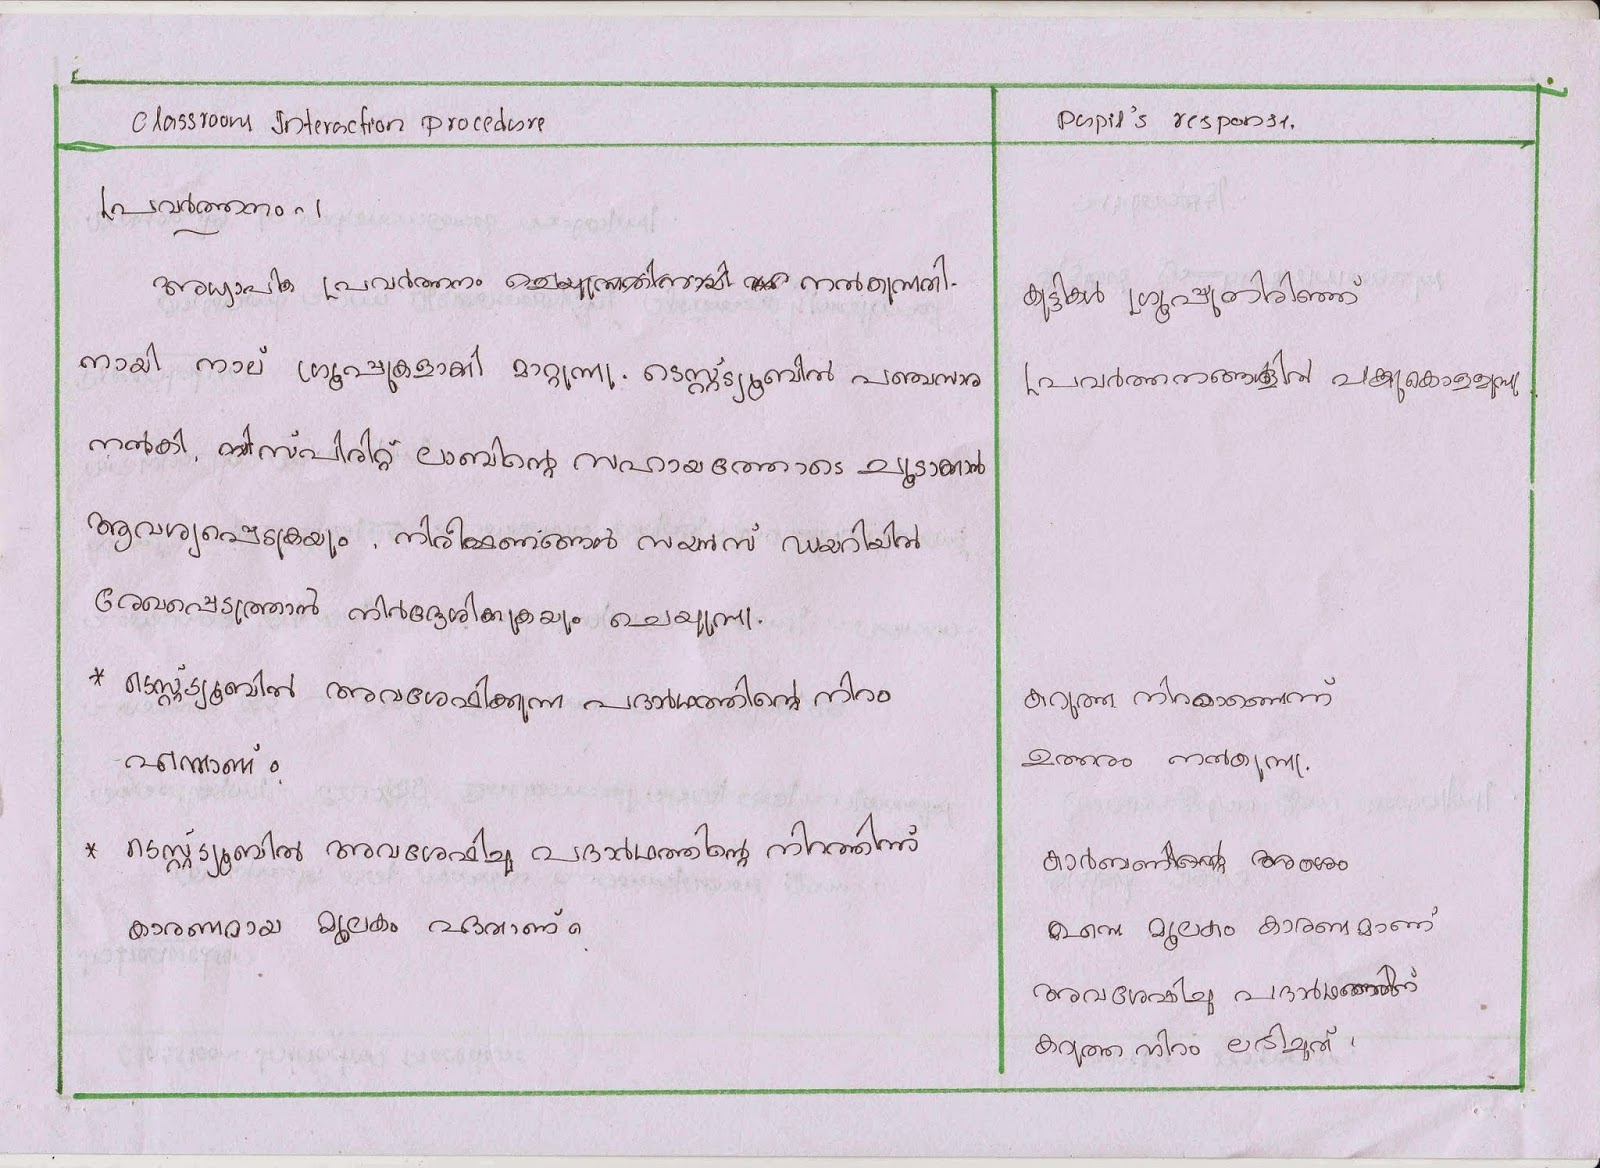 Classroom Interaction Procedure
Pupil's response.
പ്രവർത്തനം - 1
അധ്യാപിക പ്രവർത്തനം ചെയ്യുന്നതിനായി നൽകുന്നതി-
നായി നാല് ഗ്രൂപ്പുകളാക്കി മാറ്റുന്നു. ടെസ്റ്റ്ട്യൂബിൽ പഞ്ചസാര
നൽകി. സ്പിരിറ്റ് ലാബിന്റെ സഹായത്തോടെ ചൂടാക്കാൻ
ആവശ്യപ്പെടുകയും. നിരീക്ഷണങ്ങൾ സയൻസ് ഡയറിയിൽ
രേഖപ്പെടുത്താൻ നിർദ്ദേശിക്കുകയും ചെയ്യുന്നു.
* ടെസ്റ്റ്ട്യൂബിൽ അവശേഷിക്കുന്ന പദാർഥത്തിന്റെ നിറം
എന്താണ്?
* ടെസ്റ്റ്ട്യൂബിൽ അവശേഷിച്ച പദാർഥത്തിന്റെ നിറത്തിന്
കാരണമായ മൂലകം ഏതാണ്?
കുട്ടികൾ ഗ്രൂപ്പുതിരിഞ്ഞ്
പ്രവർത്തനങ്ങളിൽ പങ്കുകൊള്ളുന്നു.
കറുത്ത നിറമാണെന്ന്
ഉത്തരം നൽകുന്നു.
കാർബണിന്റെ അംശം
എന്ന മൂലകം കാരണമാണ്
അവശേഷിച്ച പദാർഥത്തിന്
കറുത്ത നിറം ലഭിച്ചത്.